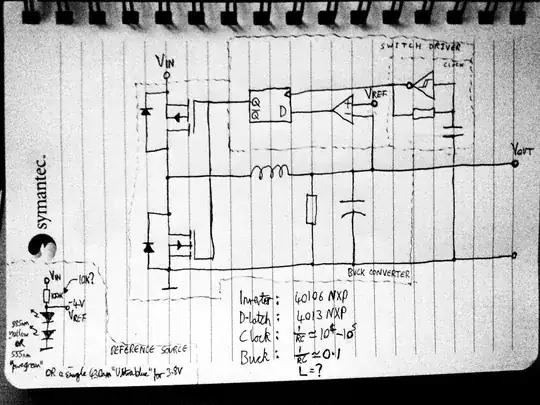 SWITCH DRIVER
CLOCK
VIN
VREF
Q
Q̅ D
+
-
VOUT
symantec.
BUCK CONVERTER
VIN
10K?
100K
~4V
VREF
585nm
yellow
OR
555nm
"puregreen"
REFERENCE SOURCE
OR a single 430nm "Ultrablue" for 3.8V
Inverter: 40106 NXP
D-latch: 4013 NXP
Clock: 1/RC ≃ 10⁴-10⁵
Buck: 1/RC ≃ 0.1
L = ?